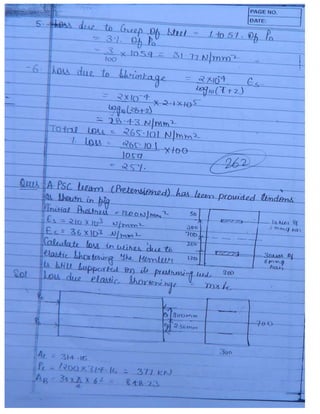 PAGE NO.
DATE:
5. Loss due to Creep of Steel = 1 to 5% of Po
= 3% of Po
= 3/100 × 1059 = 31.77 N/mm²
6. Loss due to Shrinkage = 2×10⁻⁴ / log₁₀(T+2) Es
= 2×10⁻⁴ / log₁₀(28+2) × 2.1×10⁵
= 28.43 N/mm²
Total Loss = 265.101 N/mm²
% Loss = 265.101/1059 ×100
= 25%
262
A PSC beam (Pretensioned) has been provided tendons
as shown in fig
Initial Prestress = 1200 N/mm²
Es = 210×10³ N/mm²
Ec = 36×10³ N/mm²
Calculate loss in wires due to
elastic shortening. The Member
is still supported on it
50
300
200
Sol Loss due elastic shortening
300mm
250mm
700
300
= 314.16
= 1200×314.16 = 377 KN
= 30×π/4×6² = 848.23